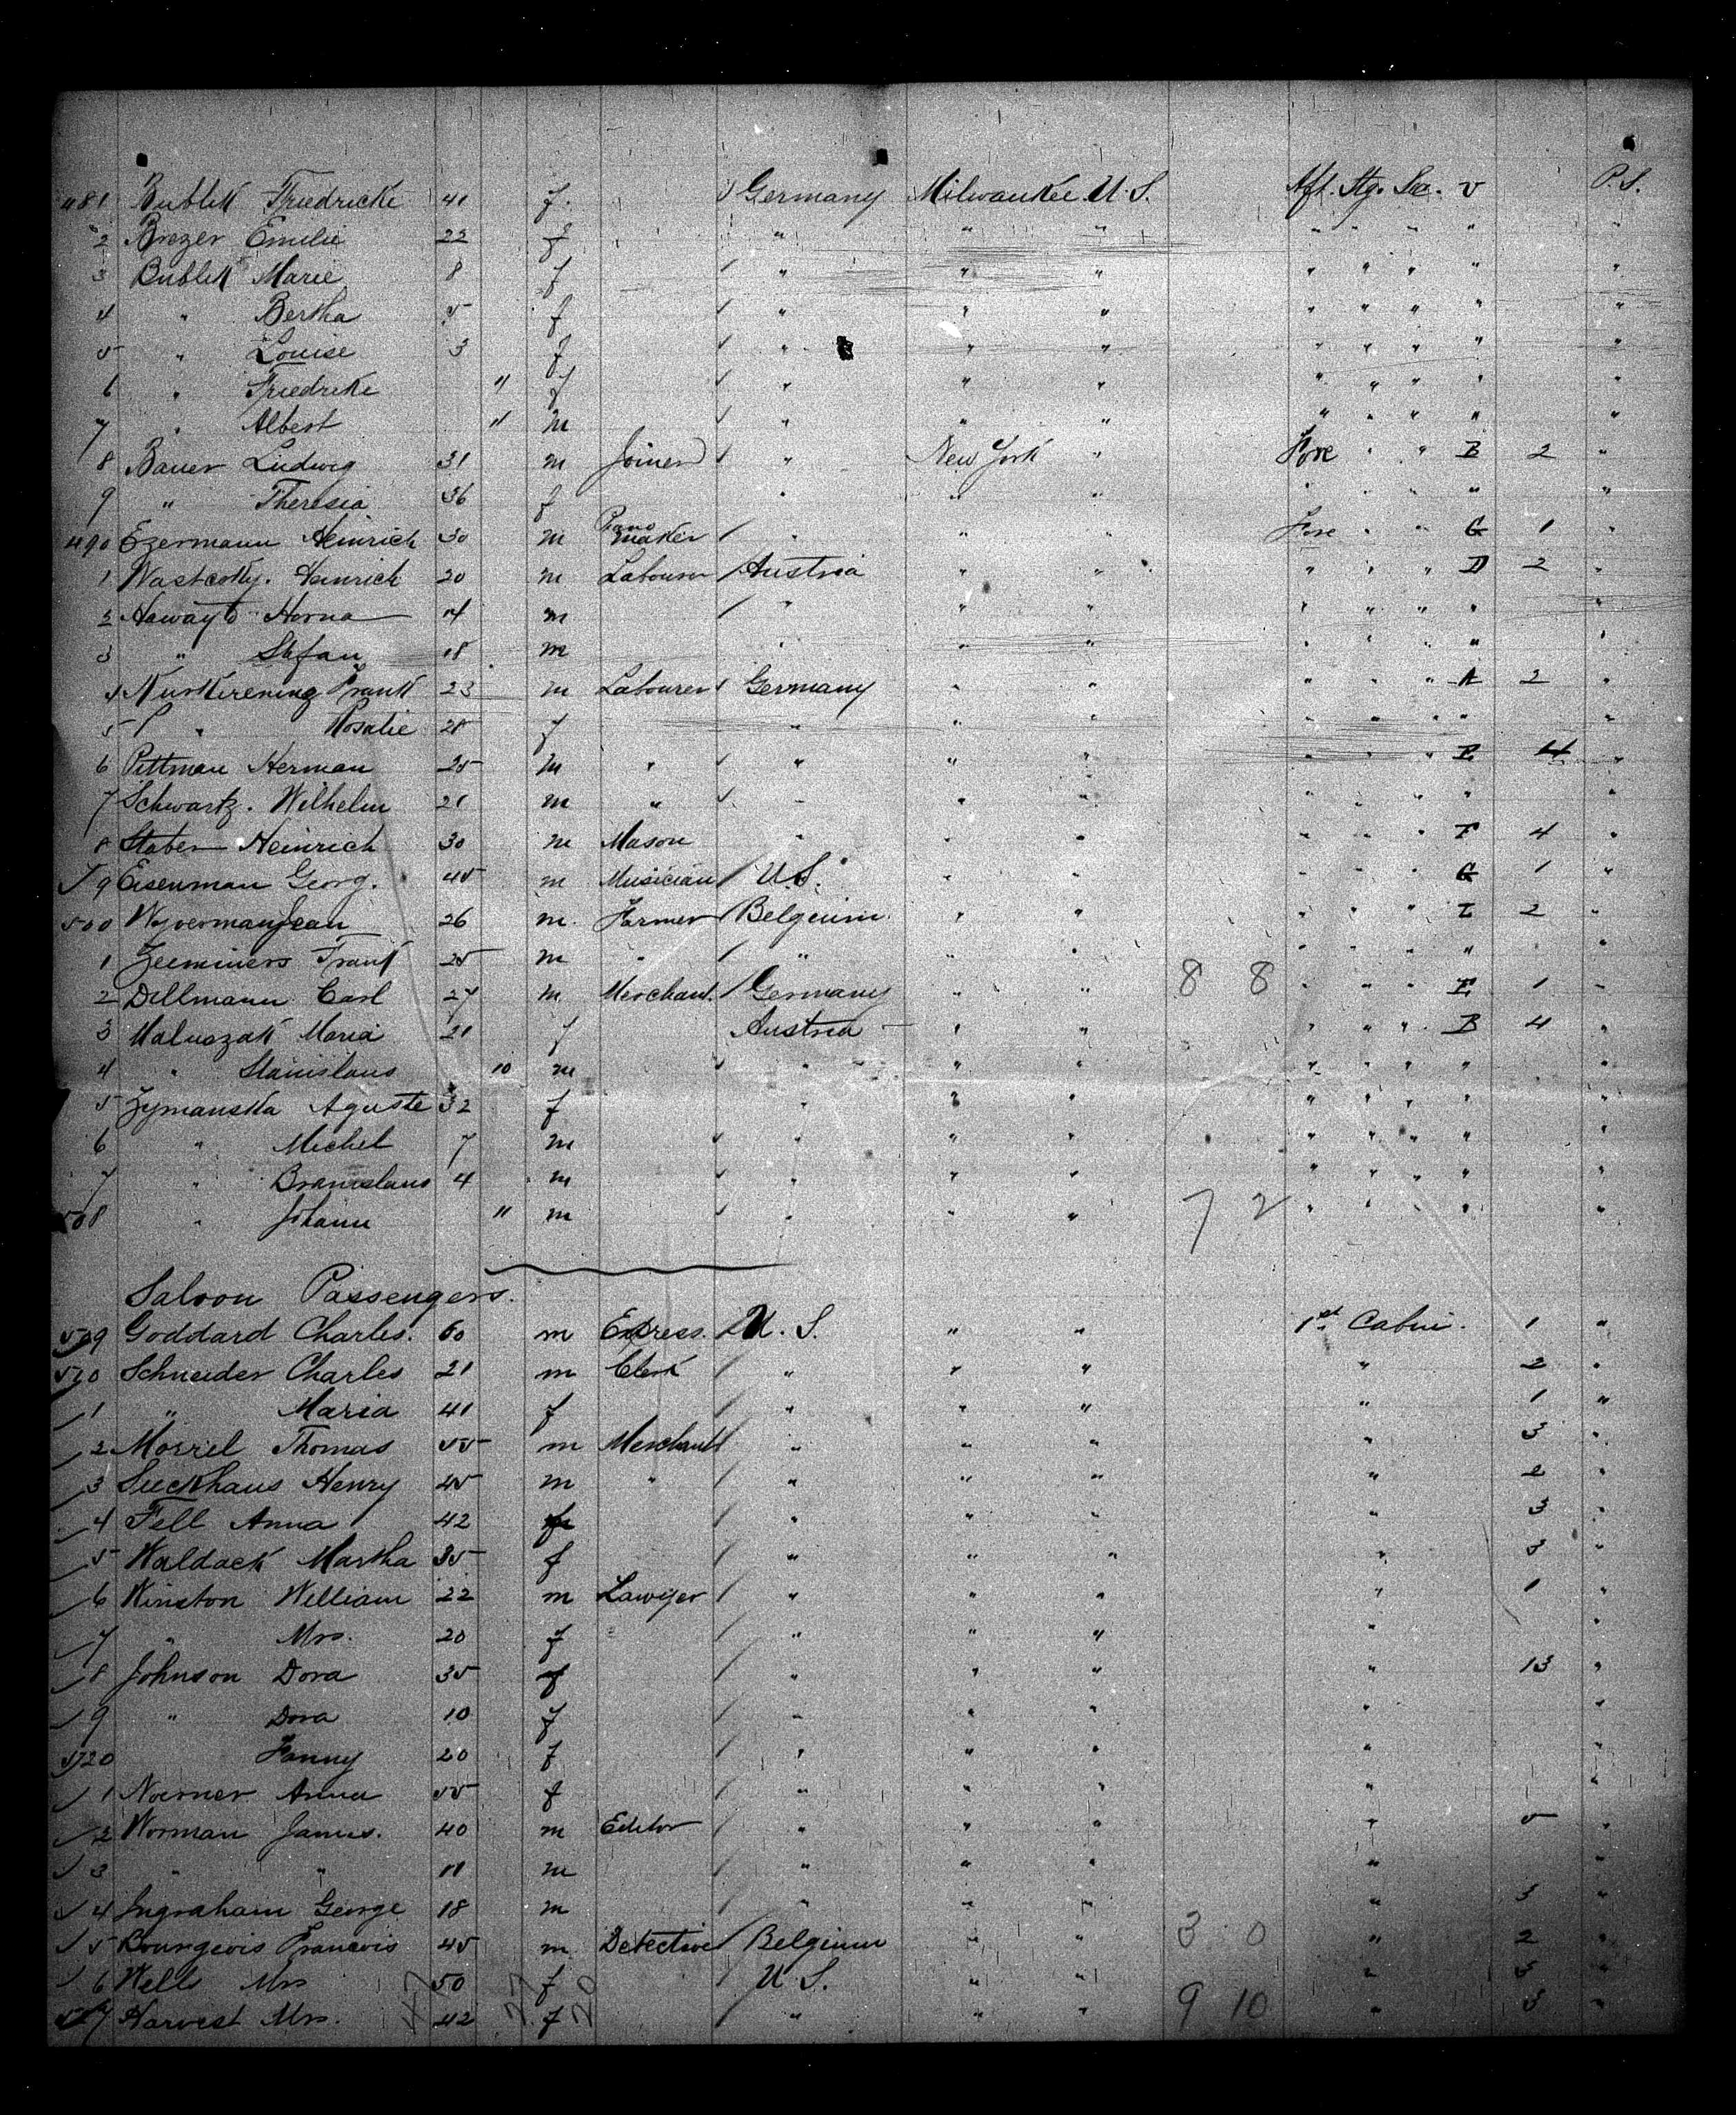 481 Bublitt Friedricke 41 f. Germany Milwaukee U.S. Aft. Stg. v P.S.
2 Brezer Emilie 22 f " " " " " " " "
3 Bublitt Marie 8 f " " " " " " " "
4 " Bertha 5 f " " " " " " " "
5 " Louise 3 f " " " " " " " "
6 " Friedrike 11 f " " " " " " " "
7 " Albert 11 m " " " " " " " "
8 Bauer Ludwig 31 m Joiner " New York " Fore " " B 2 "
9 " Theresia 36 f " " " " " " " "
490 Ezermann Heinrich 30 m Piano maker " " " Fore " " G 1 "
1 Heinrich 20 m Labourer Austria " " " " " D 2 "
2 Horna 14 m " " " " " " " "
3 " Stefan 18 m " " " " " " " "
4 Frank 23 m Labourer Germany " " " " " A 2 "
5 " Rosalie 28 f " " " " " " " "
6 Pittman Herman 25 m " " " " " " " E 4 "
7 Schwartz. Wilhelm 21 m " " " " " " " " "
8 Staben Heinrich 30 m Mason " " " " " " F 4 "
9 Eisenman Georg. 45 m Musician U.S. " " " " " G 1 "
500 Jean 26 m. Farmer Belgium " " " " " I 2 "
1 Zeeminers Frank 25 m " " " " " " " " "
2 Dillmann Carl 27 m Merchant. Germany " " 8 8 " " " E 1 "
3 Maluszak Maria 21 f Austria " " " " " B 4 "
4 " Stanislaus 10 m " " " " " " " "
5 Zymanska Aguste 32 f " " " " " " " "
6 " Michel 7 m " " " " " " " "
7 " Branislaus 4 m " " " " " " " "
508 " Johann 11 m " " " 7 2 " " " " "
Saloon Passengers.
509 Goddard Charles. 60 m Express. U.S. " " 1st Cabin. 1 "
510 Schneider Charles 21 m Clerk " " " " 2 "
1 " Maria 41 f " " " " 1 "
2 Morrel Thomas 55 m Merchant " " " " 3 "
3 Sieckhaus Henry 45 m " " " " " 2 "
4 Fell Anna 42 f " " " " 3 "
5 Waldack Martha 35 f " " " " 3 "
6 Winston William 22 m Lawyer " " " " 1 "
7 " Mrs. 20 f " " " " "
8 Johnson Dora 35 f " " " " 13 "
9 " Dora 10 f " " " " "
520 Fanny 20 f " " " " "
1 Noerner Anna 55 f " " " " "
2 Worman James. 40 m Editor " " " " 5 "
3 " " 11 m " " " " "
4 Ingraham George 18 m " " " " 3 "
5 Bourgeois Francois 45 m Detective Belgium " " 3 0 " 2 "
6 Wells Mrs 50 f U.S. " " " 3 "
527 Harvest Mrs. 42 f " " " 9 10 " 3 "
47 27 20